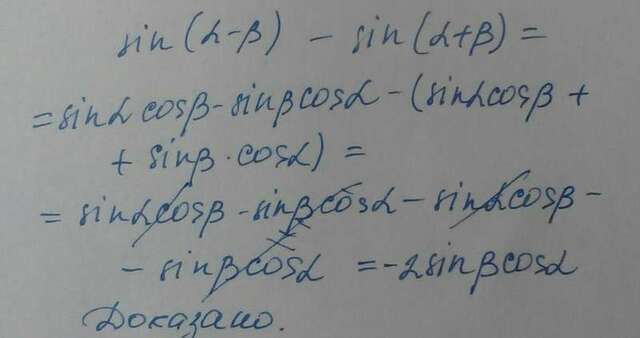 sin(α-β) - sin(α+β) =
= sinα cosβ - sinβ cosα - (sinα cosβ +
+ sinβ · cosα) =
= sinα cosβ - sinβ cosα - sinα cosβ -
- sinβ cosα = -2 sinβ cosα
Доказано.